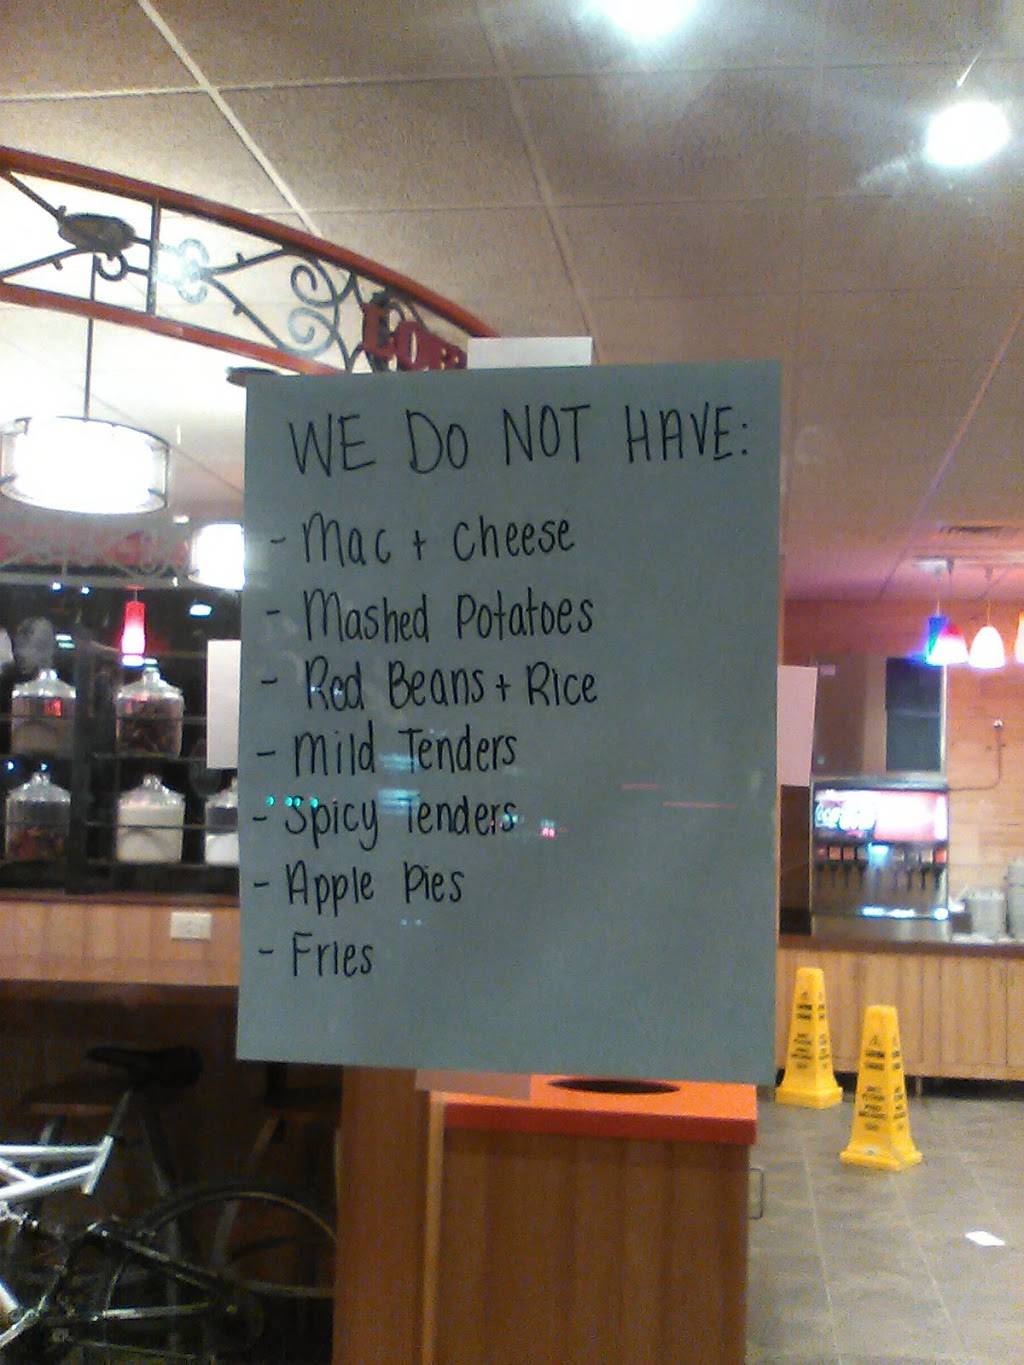 WE DO NOT HAVE:
- Mac + Cheese
- Mashed Potatoes
- Red Beans + Rice
- Mild Tenders
- Spicy Tenders
- Apple Pies
- Fries